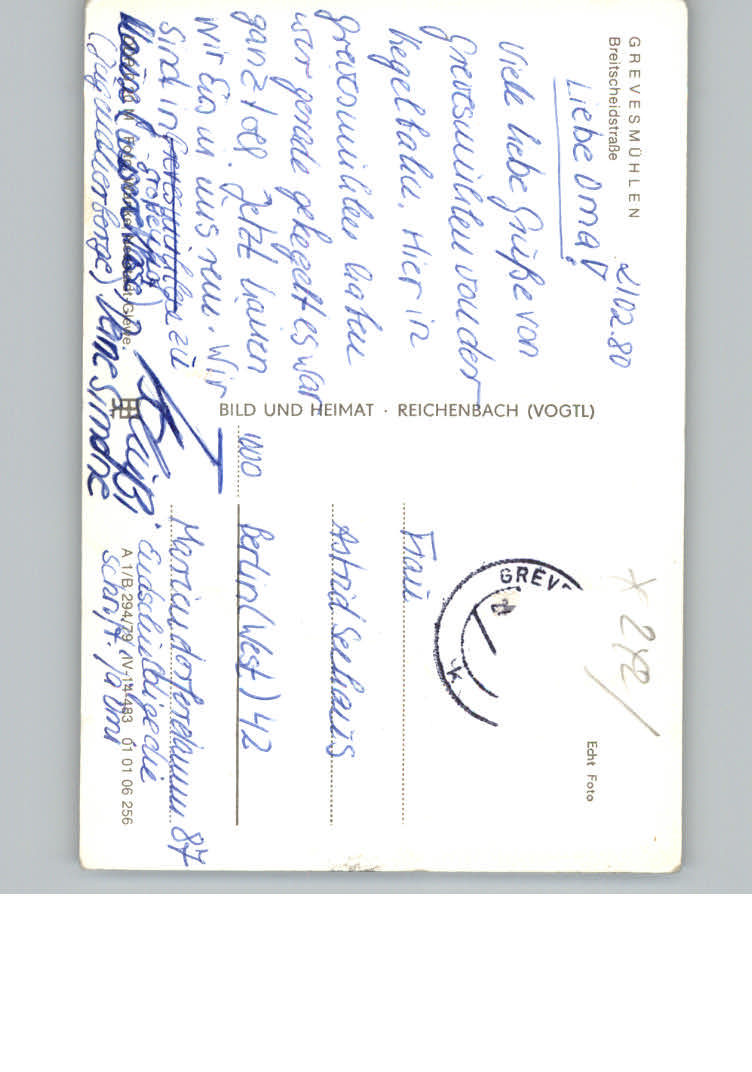 GREVESMÜHLEN
Breitscheidstraße
2102.80
Liebe Oma!
Viele liebe Grüße von
Grevesmühlen von der
Kegelbahn. Hier in
Grevesmühlen haben
wir gerade gekegelt es war
ganz toll. Jetzt hauen
wir Eis in uns rein. Wir
sind in Grevesmühlen zu
(Jugendherberge) Deine Simone
BILD UND HEIMAT · REICHENBACH (VOGTL)
GREV
Frau
Astrid Seehaus
1000 Berlin (West) 42
Mariendorferdamm 87
Entschuldige die
Schrift. Ja Omi
A 1/B 294/79 IV-14-483 01 01 06 256
Echt Foto